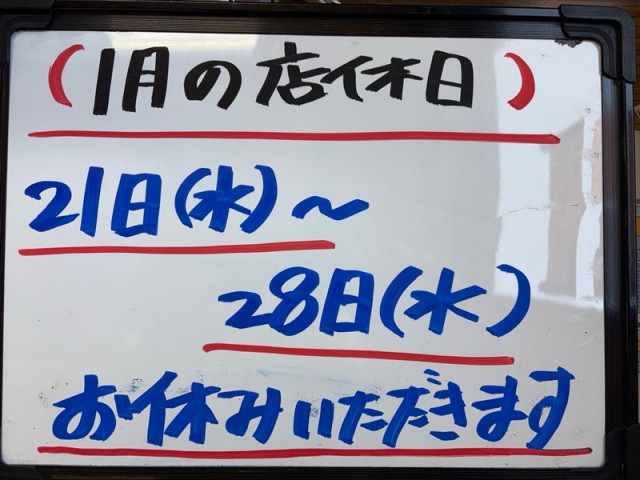 (1月の店休日)
21日(水)～
28日(水)
お休みいただきます